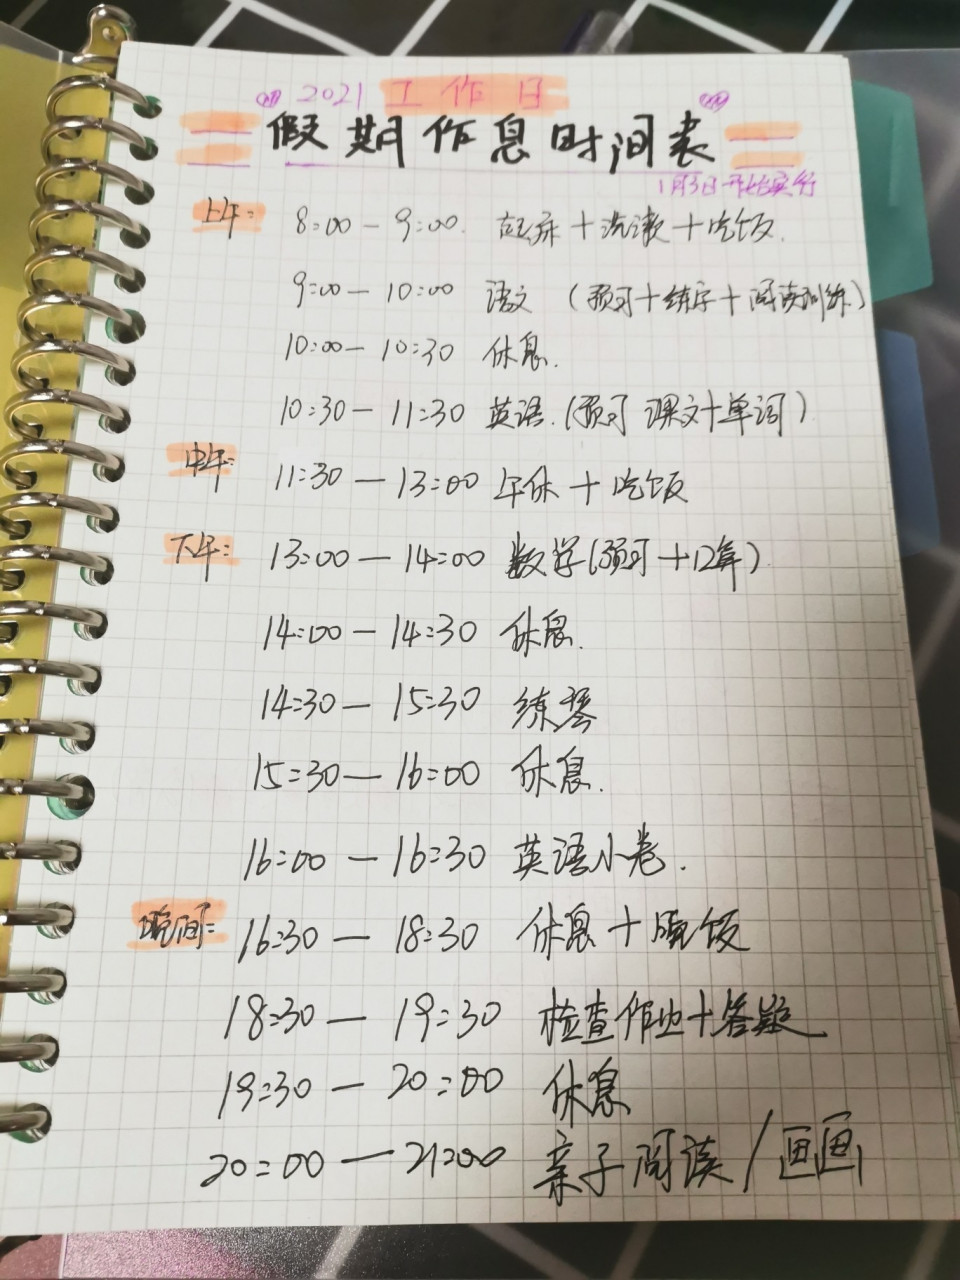 2021 工作日
假期作息时间表
1月3日开始实行
上午: 8:00 — 9:00. 起床+洗漱+吃饭.
9:00 — 10:00 语文 (预习+练字+阅读训练)
10:00 — 10:30 休息.
10:30 — 11:30 英语. (预习 课文+单词)
中午: 11:30 — 13:00 午休 + 吃饭
下午: 13:00 — 14:00 数学(预习+口算)
14:00 — 14:30 休息.
14:30 — 15:30 练琴
15:30 — 16:00 休息.
16:00 — 16:30 英语小卷.
晚间: 16:30 — 18:30 休息+晚饭
18:30 — 19:30 检查作业+答疑
19:30 — 20:00 休息
20:00 — 21:00 亲子阅读/画画